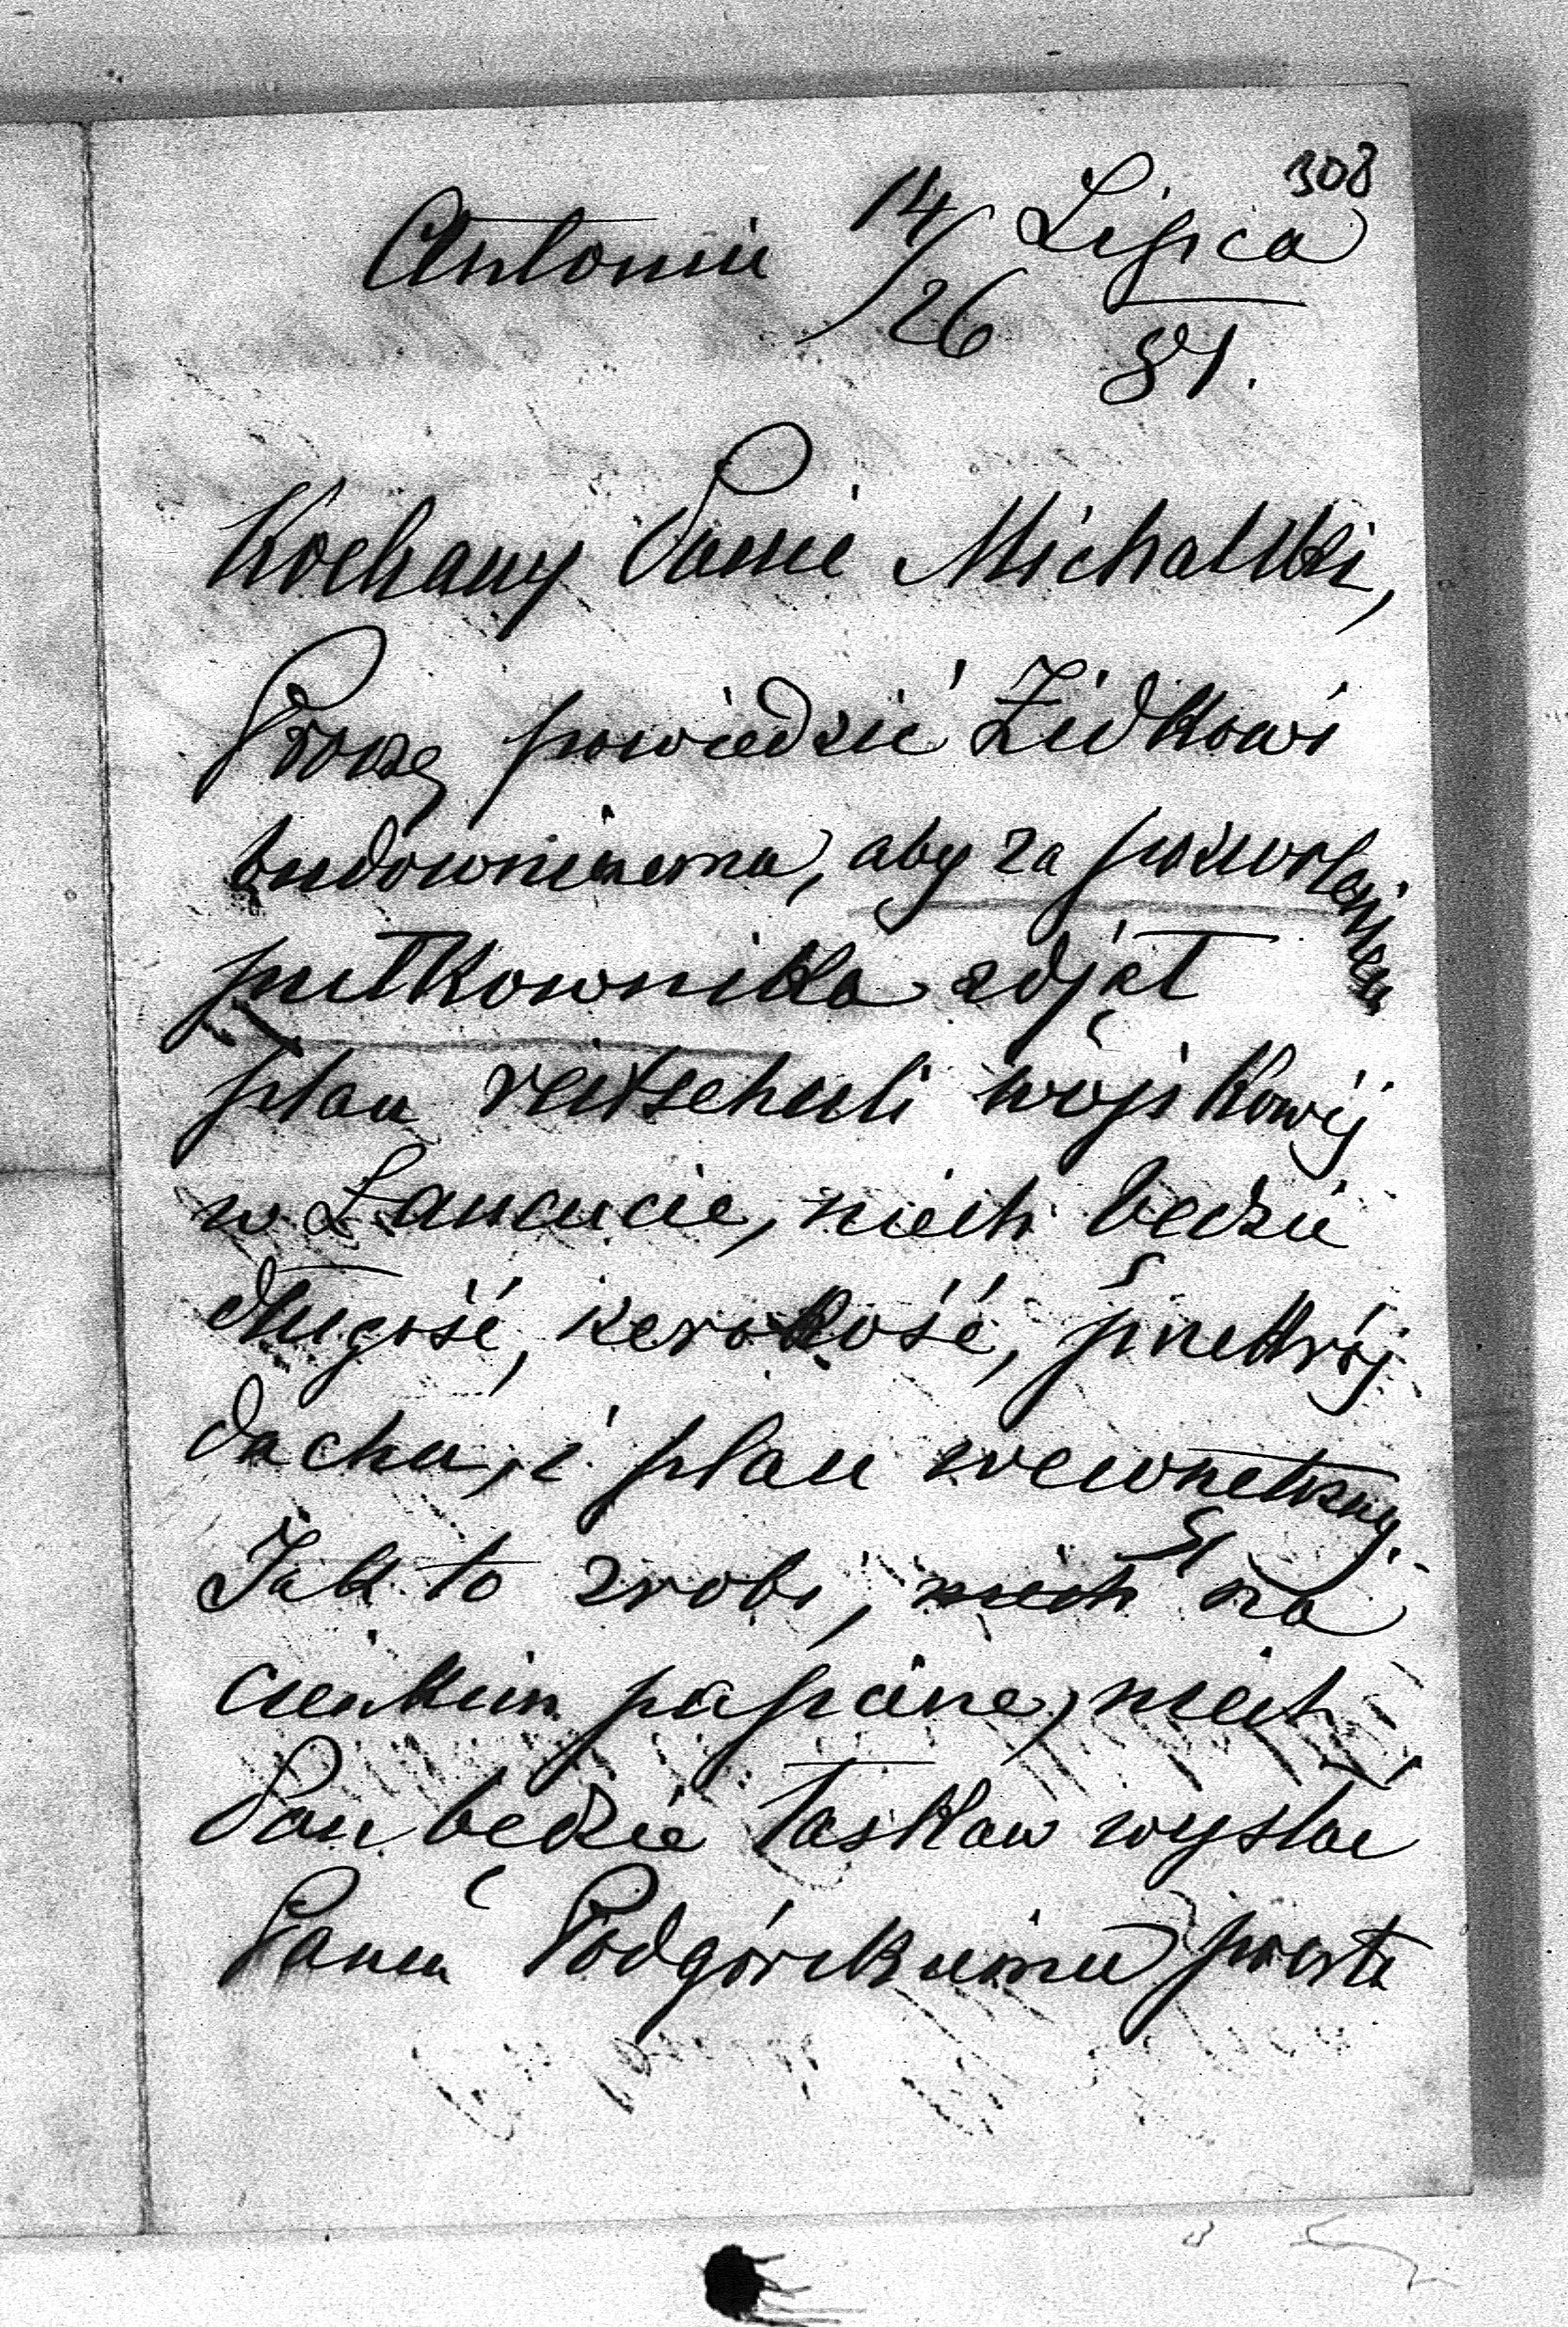 308
Antonin 14/26 Lipca
81.
Kochany Panie Michalski,
Proszę powiedzieć Zidkowi
budowniczemu, aby za pozwoleniem
pułkownika zdjął
plan reitschuli wojskowej
w Łancucie, niech będzie
długość, szerokość, przekrój
dachu, i plan wewnetrzny.
Jak to zrobi, niech na
cienkim papierze, niech
Pan będzie łaskaw wysłać
Panu Podgórskiemu poczte